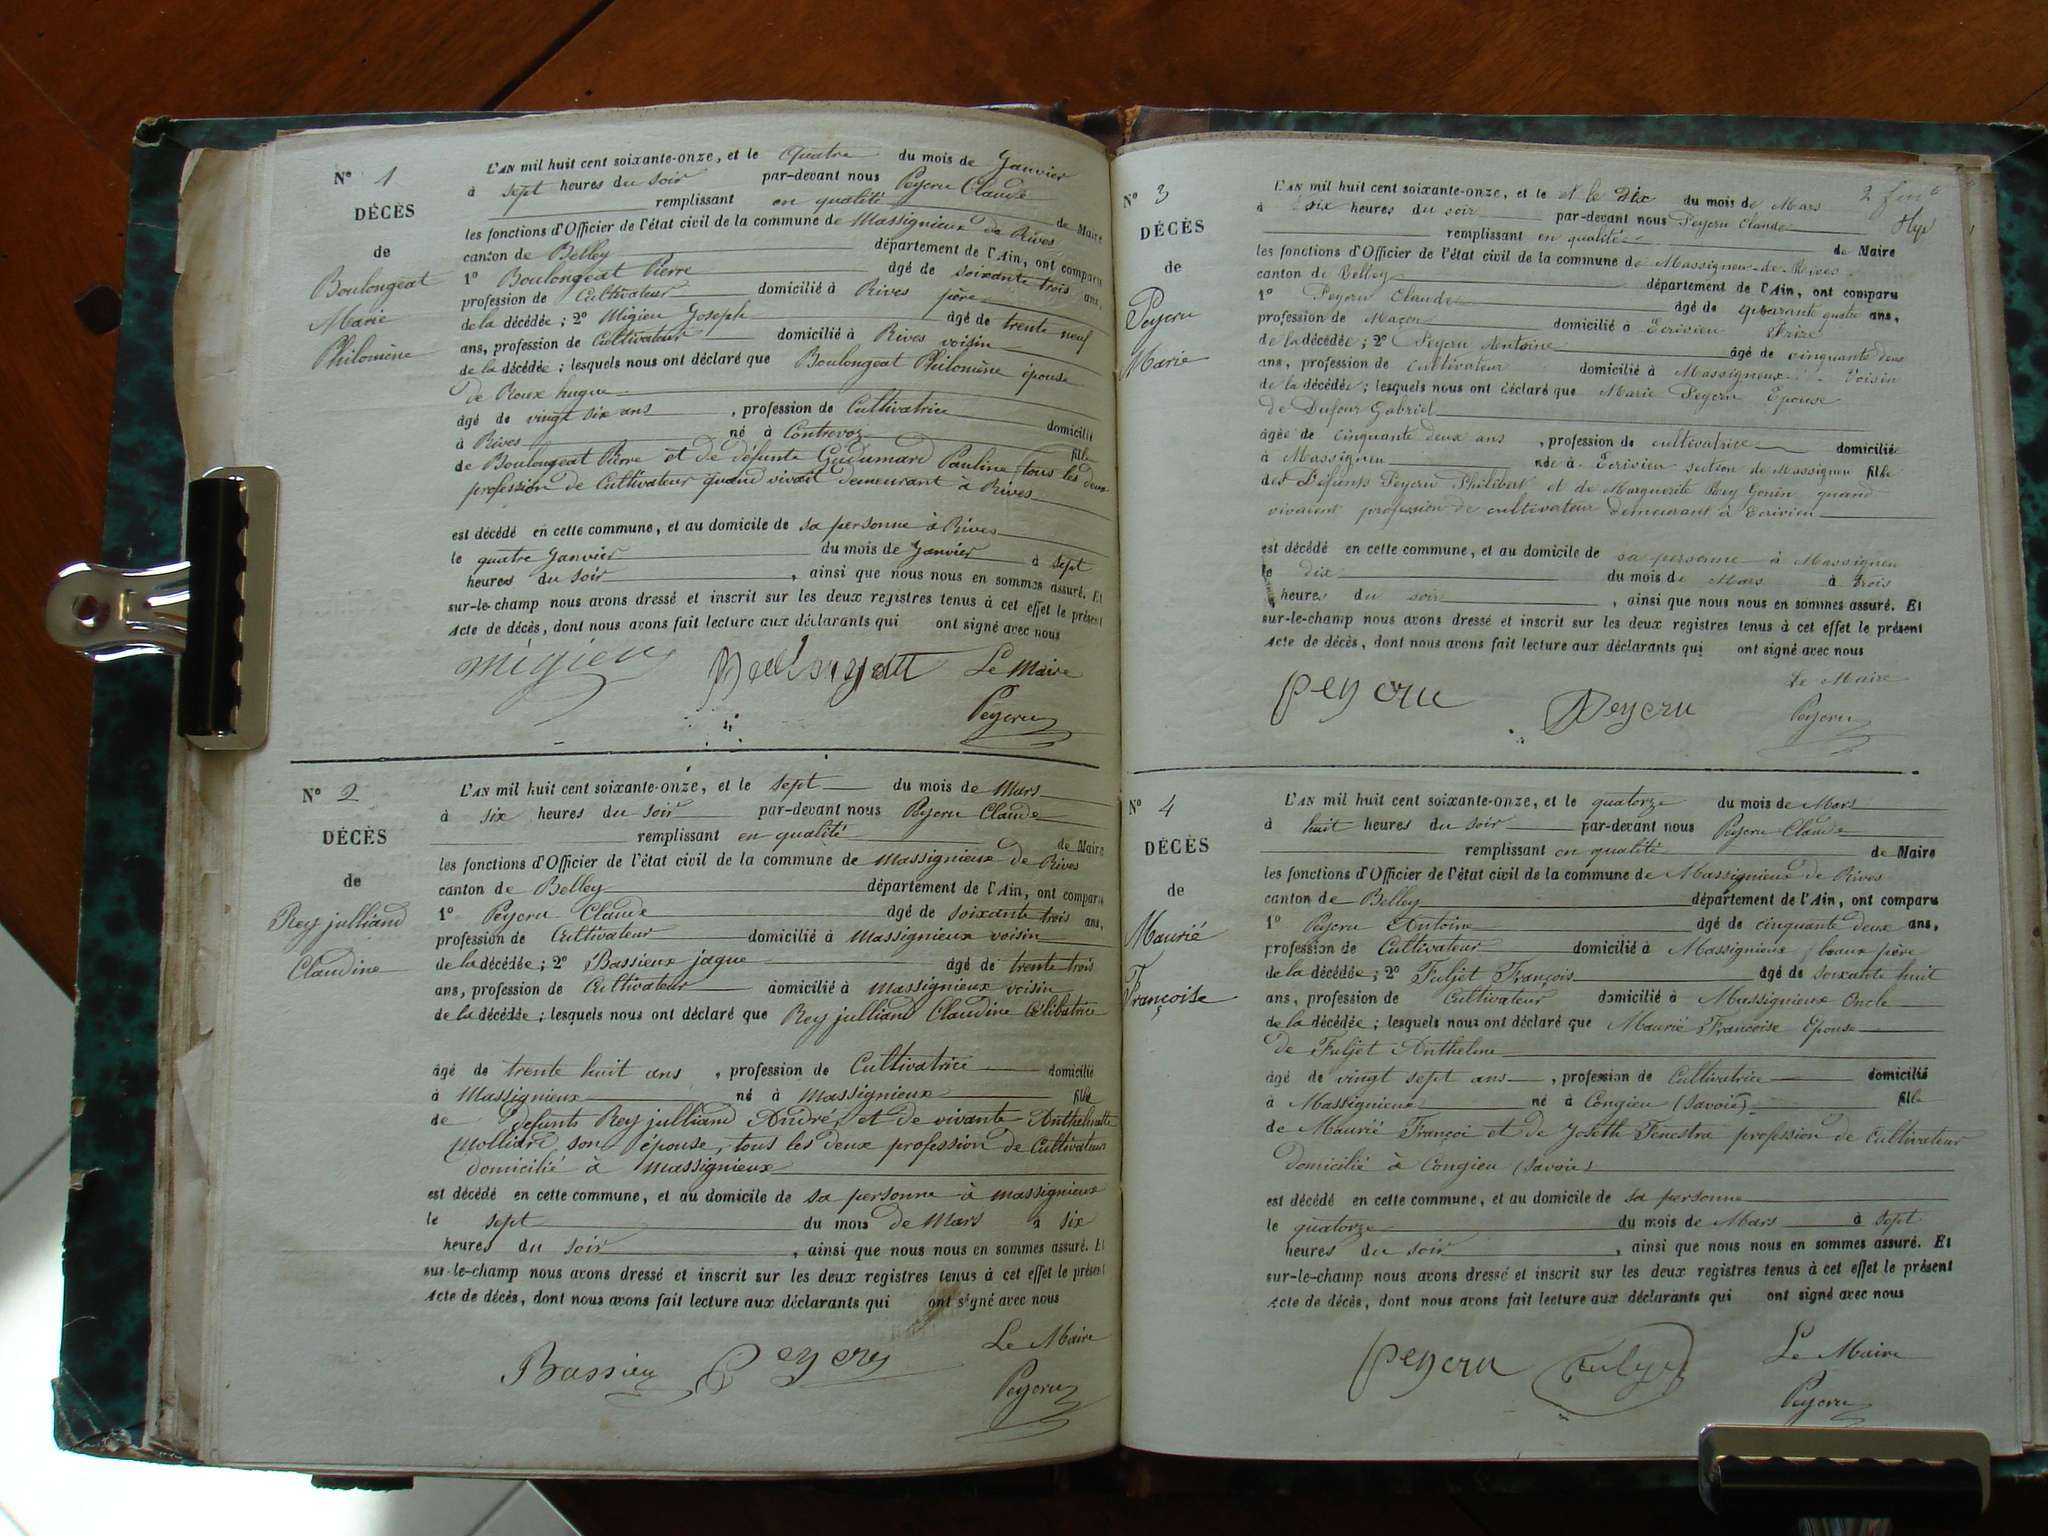 N° 1
DÉCÈS
de
Boulongeat
Marie
Philomène
L'AN mil huit cent soixante-onze, et le quatre du mois de Janvier
à sept heures du soir par-devant nous Peyeru Claude
remplissant en qualité de Maire
les fonctions d'Officier de l'état civil de la commune de Massignieux de Rives
canton de Belley département de l'Ain, ont comparu
1° Boulongeat Pierre âgé de soixante trois ans,
profession de Cultivateur domicilié à Rives père
de la décédée ; 2° Migieu Joseph âgé de trente neuf
ans, profession de Cultivateur domicilié à Rives voisin
de la décédée ; lesquels nous ont déclaré que Boulongeat Philomène épouse
de Roux hugue
âgé de vingt six ans , profession de Cultivatrice domicilié
à Rives né à Contrevoz fille
de Boulongeat Pierre et de défunte Gudumard Pauline tous les deux
profession de Cultivateur quand vivait demeurant à Rives
est décédé en cette commune, et au domicile de sa personne à Rives
le quatre Janvier du mois de Janvier à sept
heures du soir , ainsi que nous nous en sommes assuré. Et
sur-le-champ nous avons dressé et inscrit sur les deux registres tenus à cet effet le présent
Acte de décès, dont nous avons fait lecture aux déclarants qui ont signé avec nous
migieu Le Maire
Peyeru
N° 2
DÉCÈS
de
Rey julliand
Claudine
L'AN mil huit cent soixante-onze, et le sept du mois de Mars
à six heures du soir par-devant nous Peyeru Claude
remplissant en qualité de Maire
les fonctions d'Officier de l'état civil de la commune de Massignieux de Rives
canton de Belley département de l'Ain, ont comparu
1° Peyeru Claude âgé de soixante trois ans,
profession de Cultivateur domicilié à Massignieux voisin
de la décédée ; 2° Bassieux jaque âgé de trente trois
ans, profession de Cultivateur domicilié à Massignieux voisin
de la décédée ; lesquels nous ont déclaré que Rey julliand Claudine Célibatrice
âgé de trente huit ans , profession de Cultivatrice domicilié
à Massignieux né à Massignieux fille
de defunts Rey julliand André, et de vivante Anthelmette
Molliard son épouse, tous les deux profession de Cultivateur
domicilié à Massignieux
est décédé en cette commune, et au domicile de sa personne à Massignieux
le sept du mois de Mars à six
heures du soir , ainsi que nous nous en sommes assuré. Et
sur-le-champ nous avons dressé et inscrit sur les deux registres tenus à cet effet le présent
Acte de décès, dont nous avons fait lecture aux déclarants qui ont signé avec nous
Bassieu Peyeru Le Maire
Peyeru
N° 3
DÉCÈS
de
Peyeru
Marie
L'AN mil huit cent soixante-onze, et le et le dix du mois de Mars
à six heures du soir par-devant nous Peyeru Claude
remplissant en qualité de Maire
les fonctions d'Officier de l'état civil de la commune de Massigneu-de-Rives
canton de Belley département de l'Ain, ont comparu
1° Peyeru Claude âgé de quarante quatre ans,
profession de Maçon domicilié à Ecrivieu frère
de la décédée ; 2° Peyeru Antoine âgé de cinquante deux
ans, profession de cultivateur domicilié à Massigneux voisin
de la décédée ; lesquels nous ont déclaré que Marie Peyeru Epouse
de Dufour Gabriel
âgée de cinquante deux ans , profession de cultivatrice domicilié
à Massigneu née à Ecrivieu section de Massigneu fille
des Défunts Peyeru Philibert et de Marguerite Rey Gonin quand
vivaient profession de cultivateur demeurant à Ecrivieu
est décédé en cette commune, et au domicile de sa personne à Massigneu
le dix du mois de Mars à trois
heures du soir , ainsi que nous nous en sommes assuré. Et
sur-le-champ nous avons dressé et inscrit sur les deux registres tenus à cet effet le présent
Acte de décès, dont nous avons fait lecture aux déclarants qui ont signé avec nous
Le Maire
Peyeru Peyeru Peyeru
N° 4
DÉCÈS
de
Maurié
Françoise
L'AN mil huit cent soixante-onze, et le quatorze du mois de Mars
à huit heures du soir par-devant nous Peyeru Claude
remplissant en qualité de Maire
les fonctions d'Officier de l'état civil de la commune de Massignieux de Rives
canton de Belley département de l'Ain, ont comparu
1° Peyeru Antoine âgé de cinquante deux ans,
profession de Cultivateur domicilié à Massignieux beaux père
de la décédée ; 2° Fuljet François âgé de soixante huit
ans, profession de Cultivateur domicilié à Massignieux Oncle
de la décédée ; lesquels nous ont déclaré que Maurié Françoise Epouse
de Fuljet Anthelme
âgé de vingt sept ans , profession de Cultivatrice domicilié
à Massignieux né à Congieu (Savoie) fille
de Maurié Françoi et de Joseth Fenestra profession de Cultivateur
domicilié à Congieu (Savoie)
est décédé en cette commune, et au domicile de sa personne
le quatorze du mois de Mars à sept
heures du soir , ainsi que nous nous en sommes assuré. Et
sur-le-champ nous avons dressé et inscrit sur les deux registres tenus à cet effet le présent
Acte de décès, dont nous avons fait lecture aux déclarants qui ont signé avec nous
Peyeru Le Maire
Peyeru